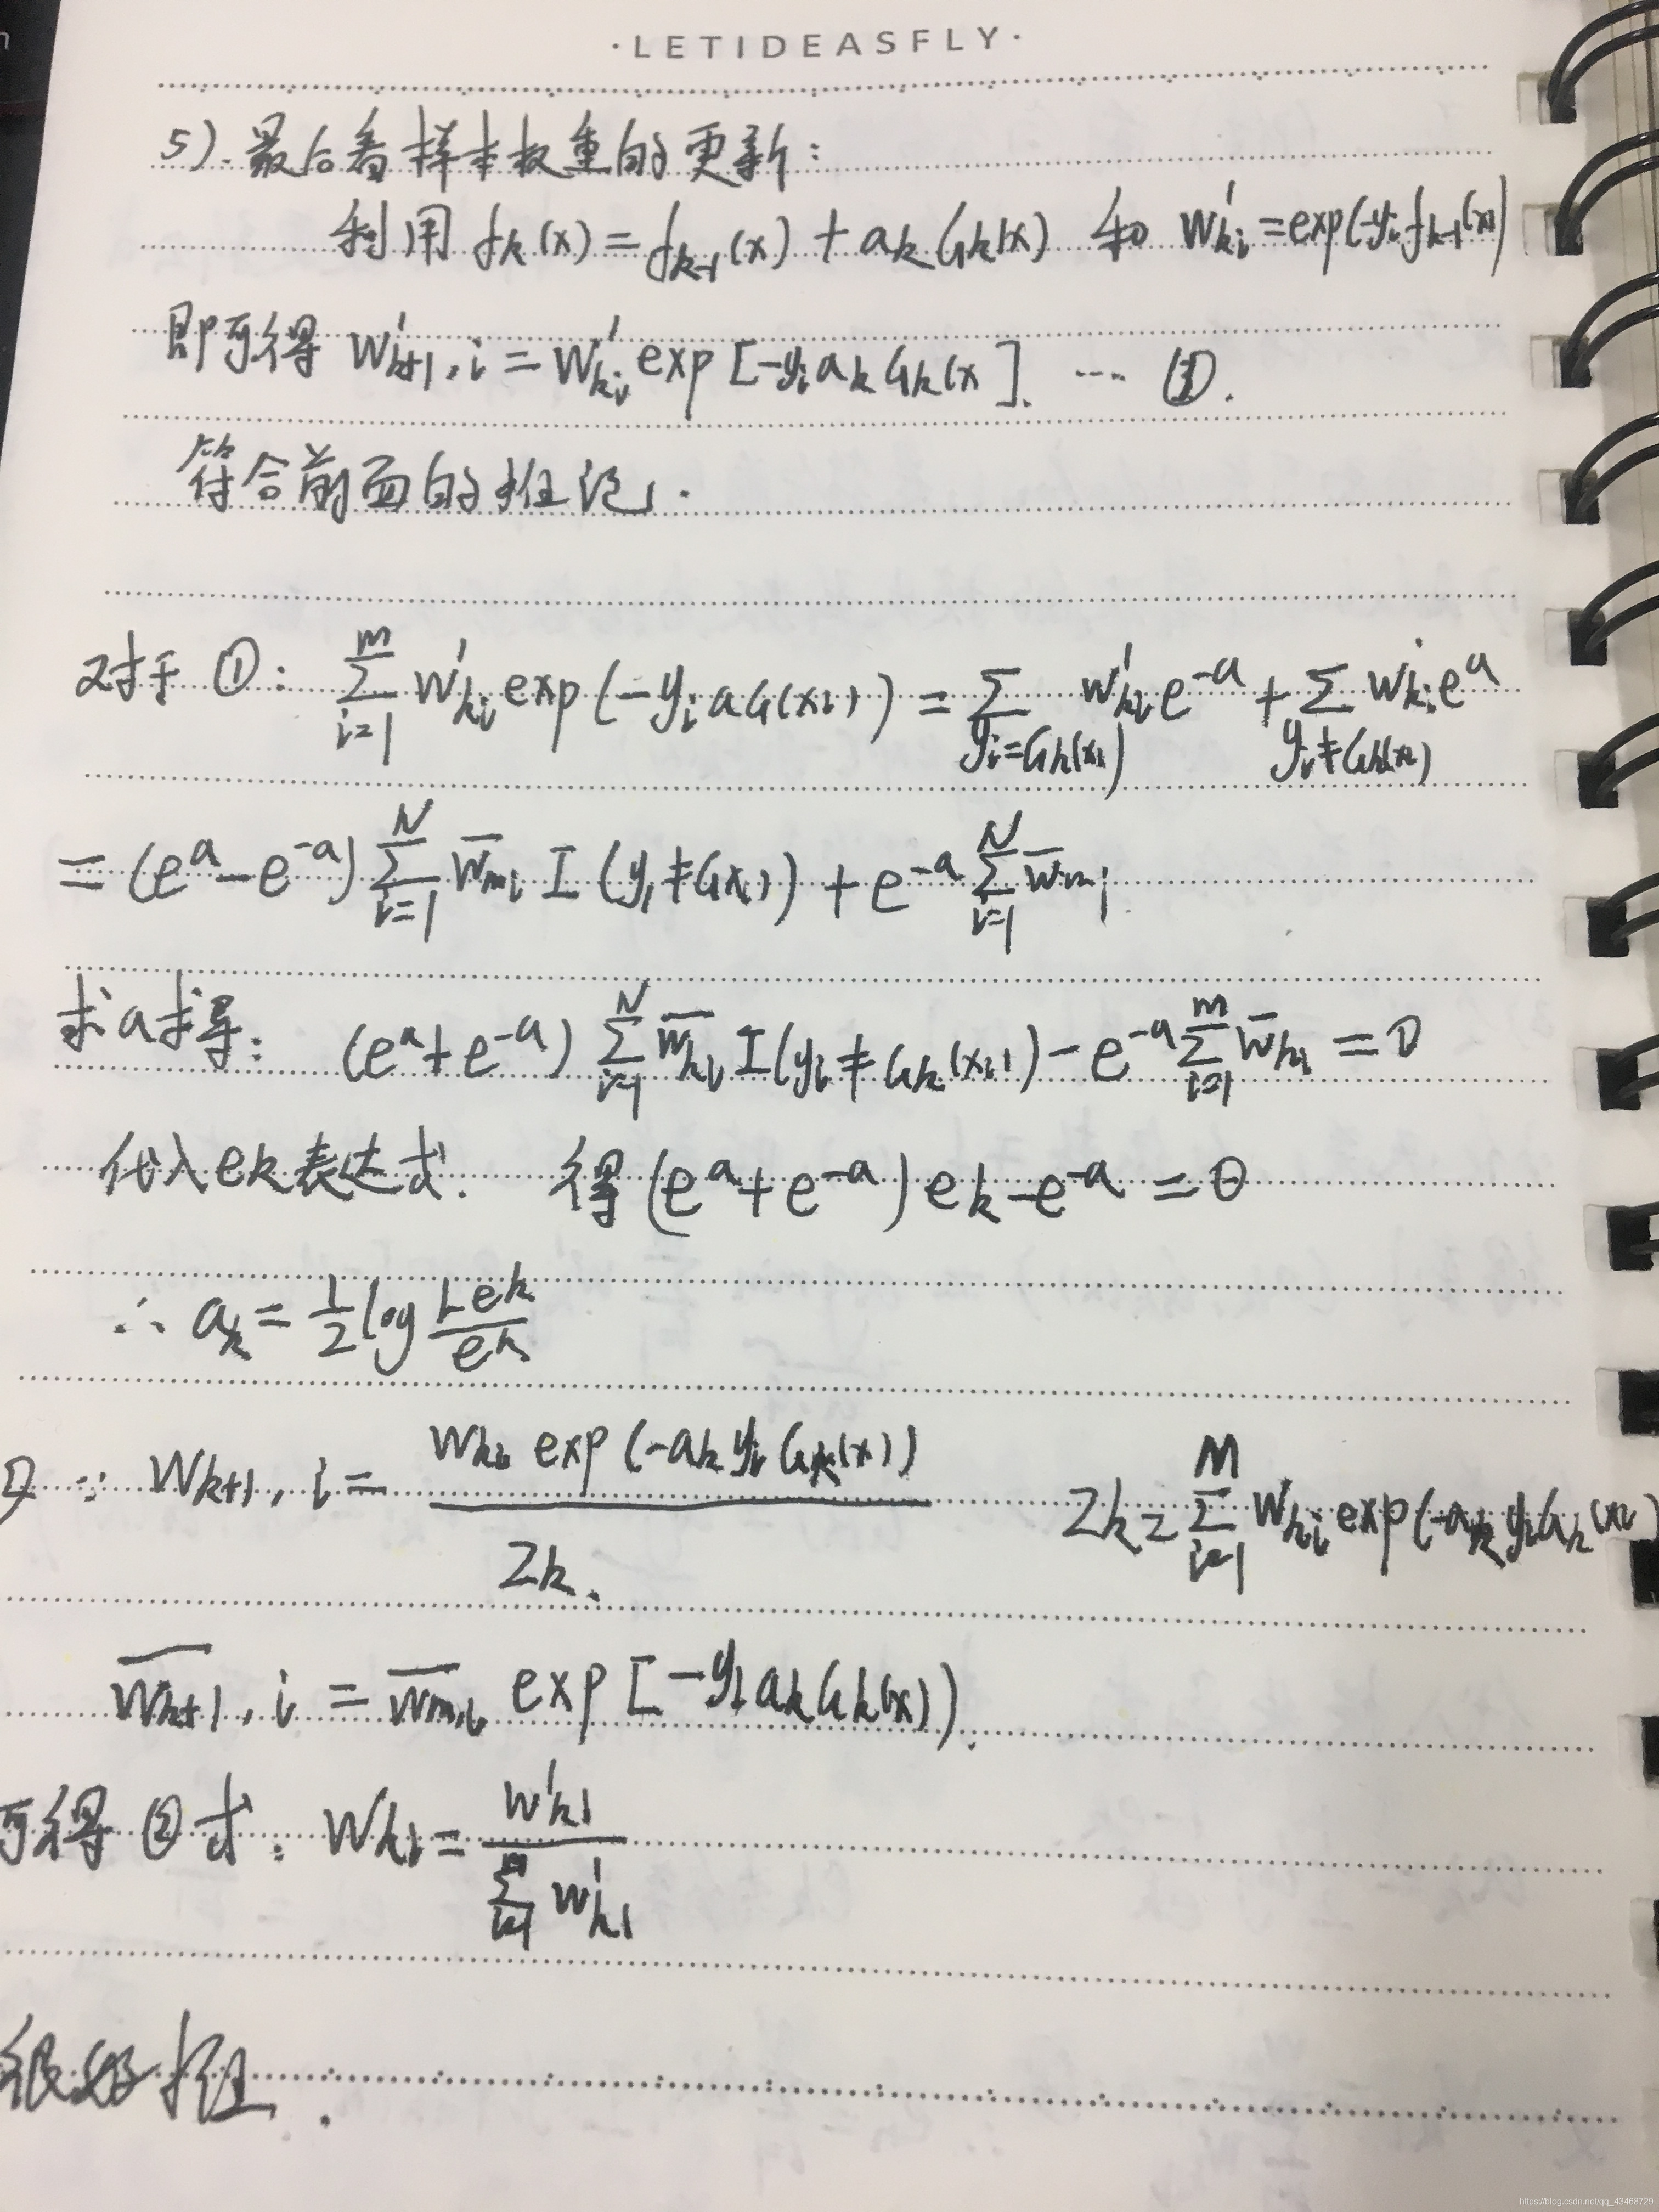 ·LETIDEASFLY·
5). 最后看样本权重的更新:
利用 fk(x) = fk-1(x) + ak Gk(x) 和 w'ki = exp(-yi fk-1(x)
即可得 w'k+1,i = w'ki exp[-yi ak Gk(x]. ...
符合前面的推论.
对于 ①: Σ_{i=1}^{m} w'ki exp(-yi a G(xi)) = Σ_{yi=Gk(xi)} w'ki e^{-a} + Σ_{yi≠Gk(xi)} w'ki e^{a}
= (e^{a} - e^{-a}) Σ_{i=1}^{N} w̅mi I(yi≠G(xi)) + e^{-a} Σ_{i=1}^{N} w̅mi
求a求导: (e^{a} + e^{-a}) Σ_{i=1}^{N} w̅ki I(yi≠Gk(xi)) - e^{-a} Σ_{i=1}^{m} w̅ki = 0
代入ek表达式. 得 (e^{a} + e^{-a}) ek - e^{-a} = 0
∴ ak = 1/2 log (1-ek)/ek
∵ Wk+1,i = Wki exp(-ak yi Gk(x)) / Zk. Zk = Σ_{i=1}^{M} Wki exp(-ak yi Gk(xi)
w̅k+1,i = w̅m,i exp[-yi ak Gk(x)).
可得 ②式: Wki = w'ki / Σ_{i=1}^{m} w'ki
很好推.
https://blog.csdn.net/qq_43468729